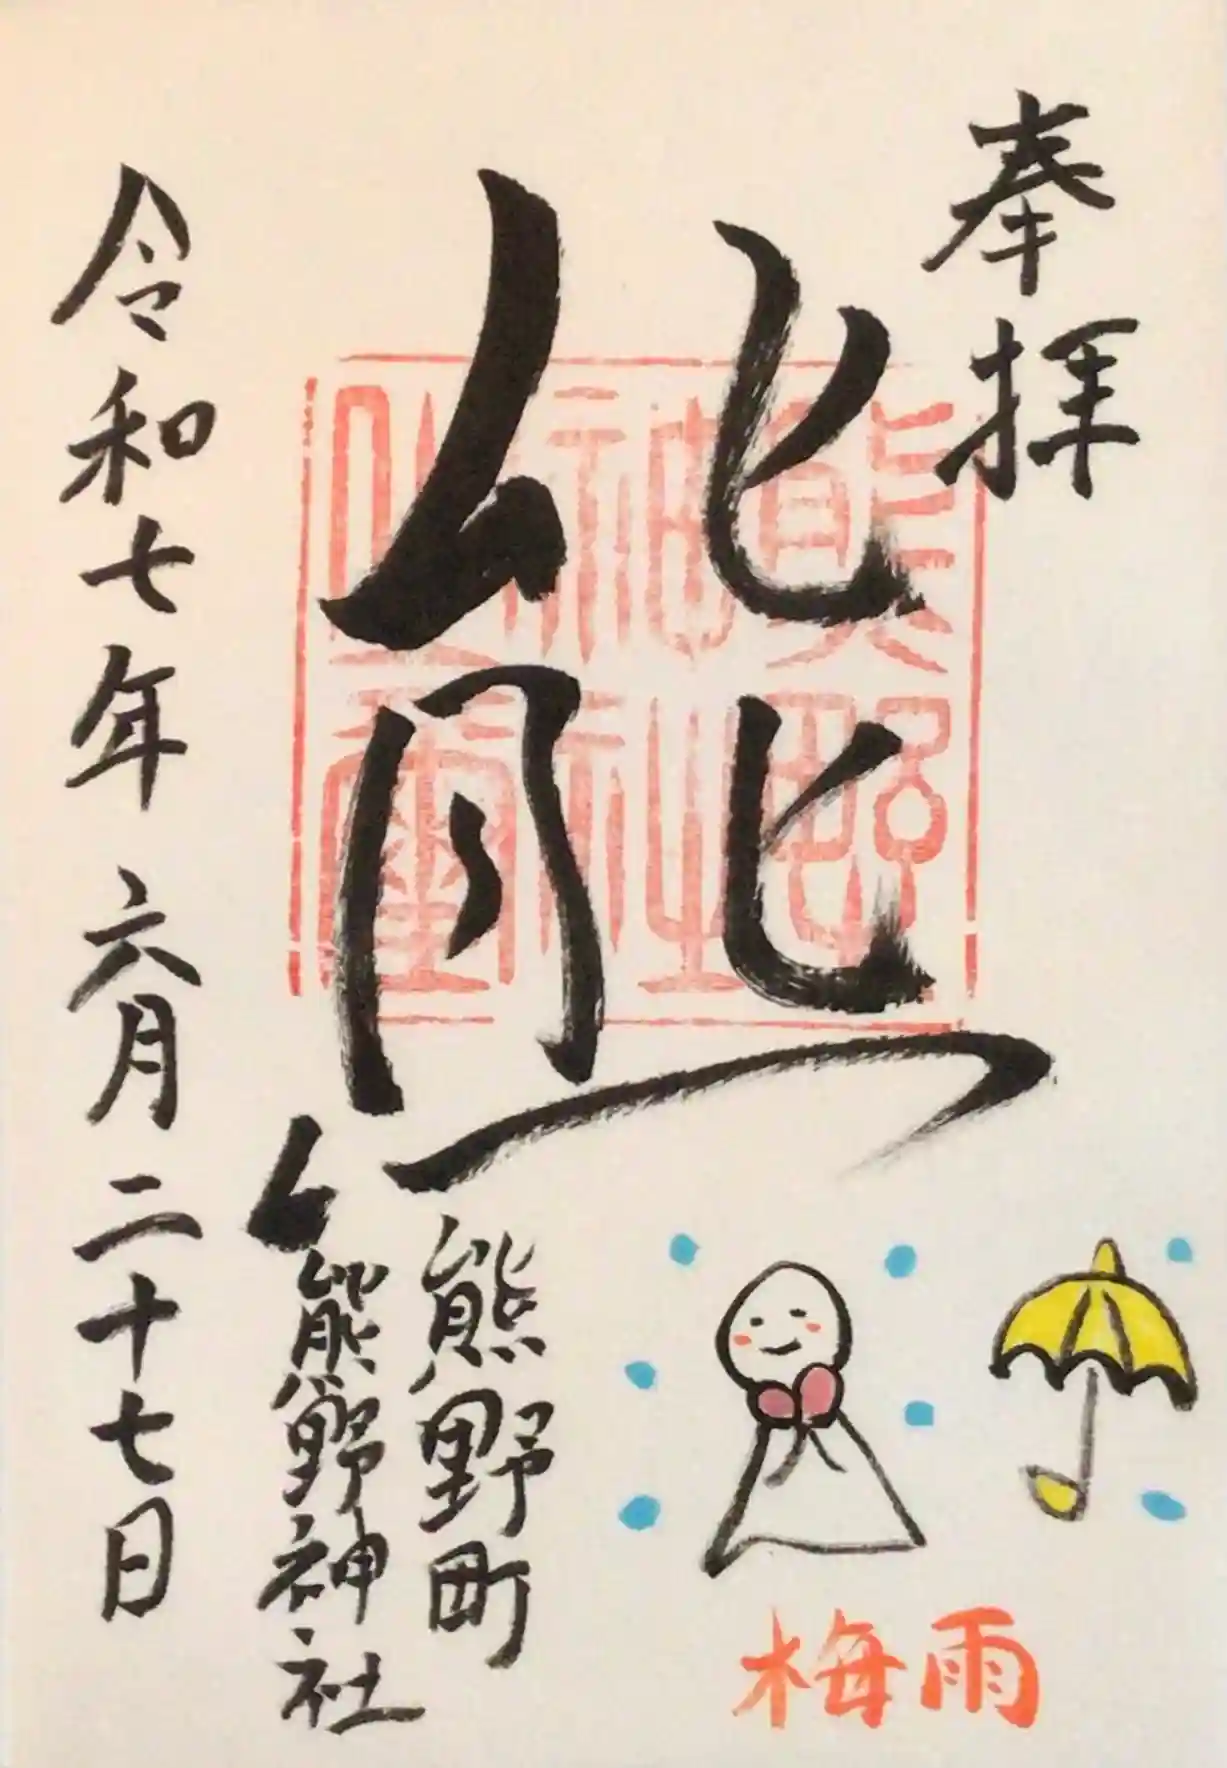 奉拝
熊
熊野町
熊野神社
令和七年六月二十七日
熊野
神社
之璽
梅雨